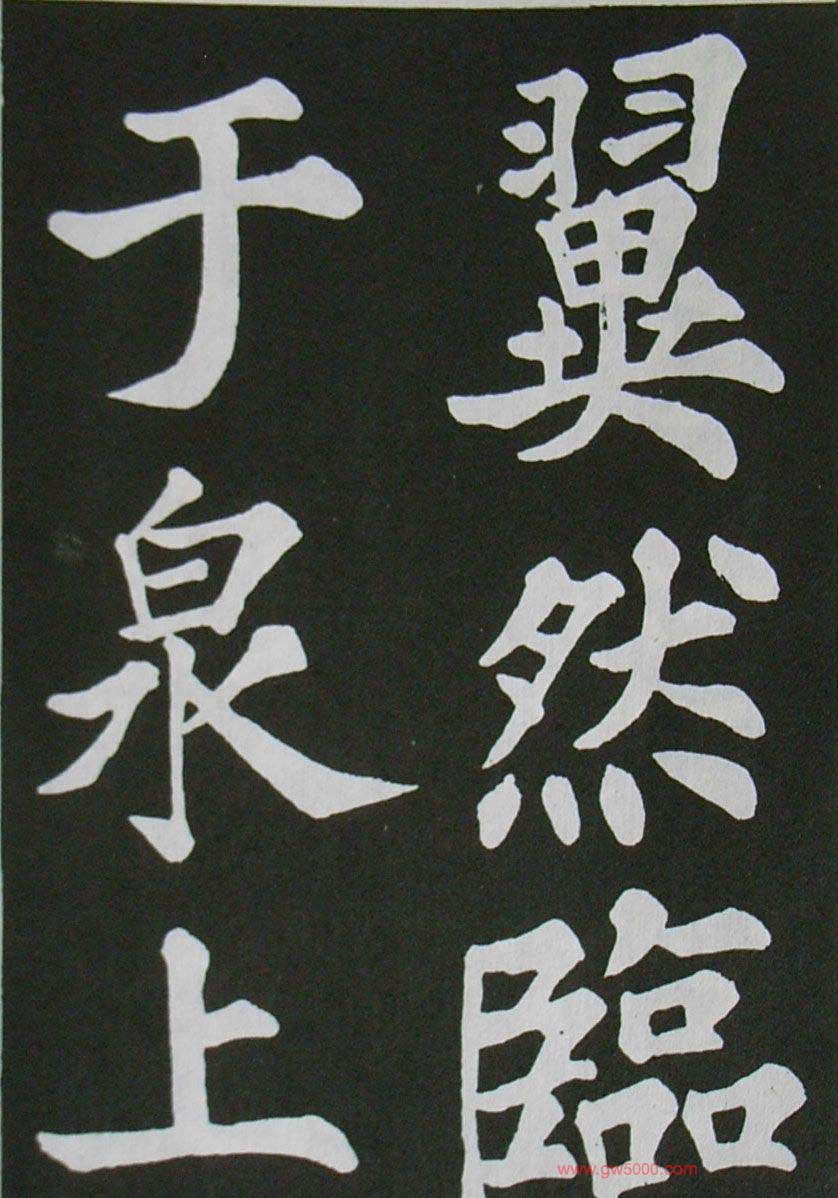 翼然臨
于泉上
www.gw5000.com